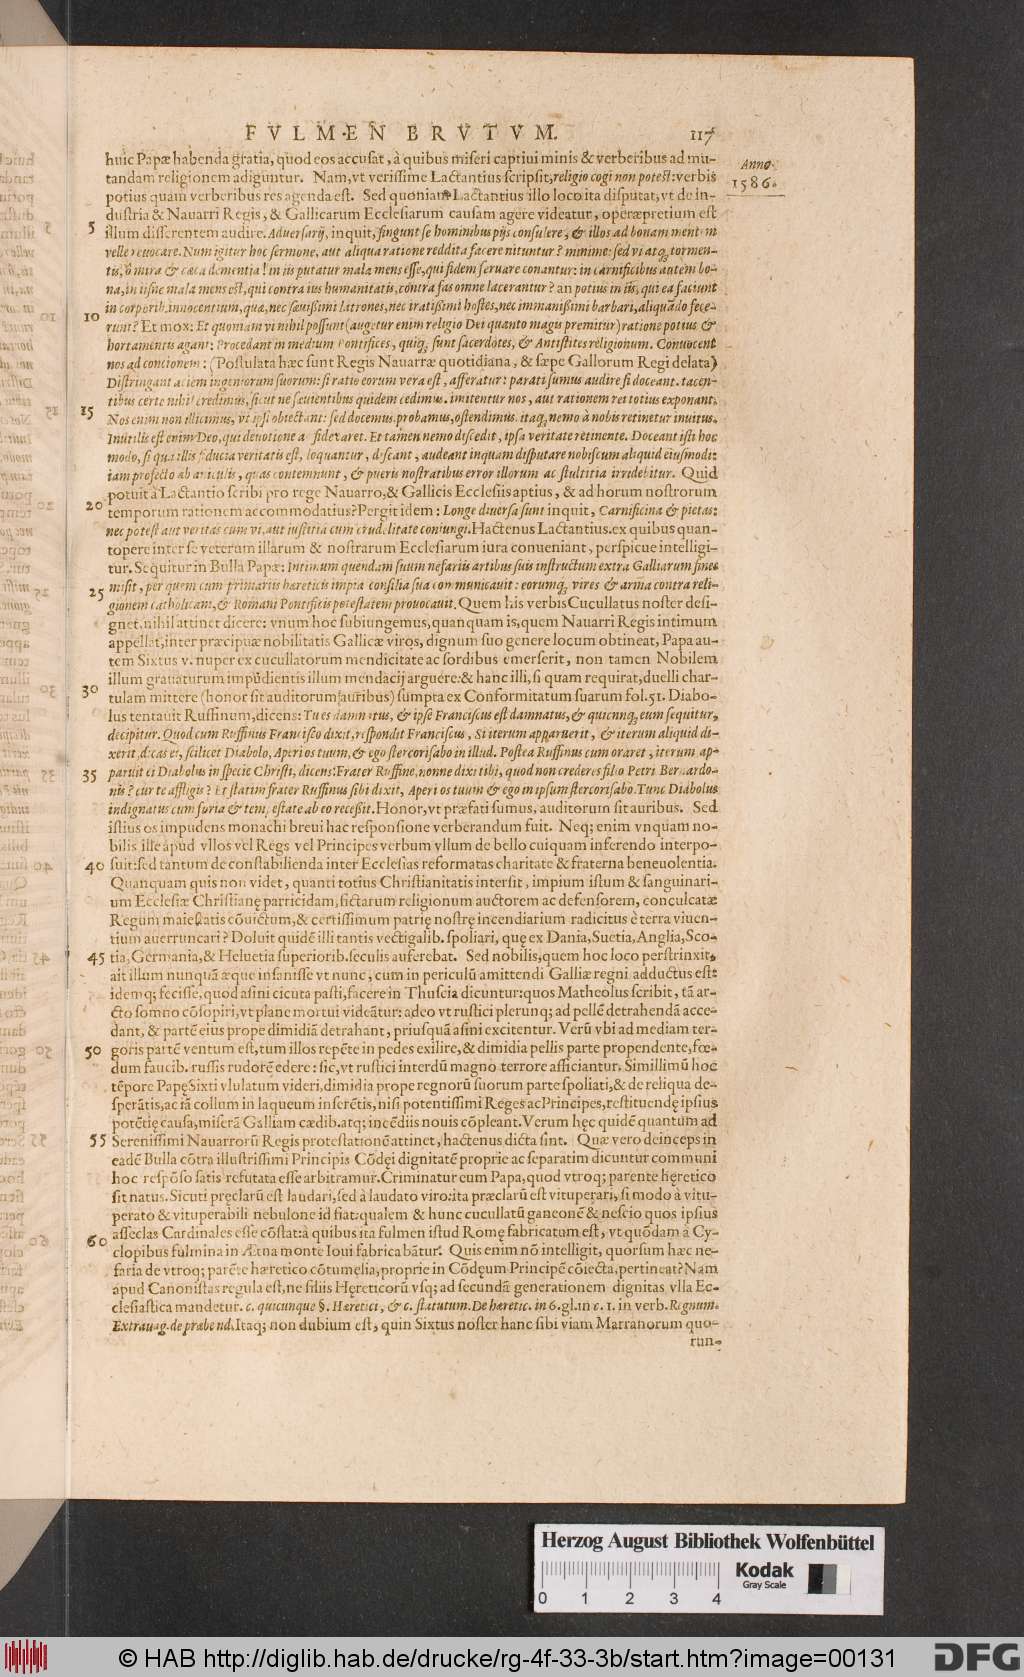 FVLMEN BRVTVM. 117
Anno
1586.
huic Papæ habenda gratia, quod eos accusat, à quibus miseri captiui minis & verberibus ad mu-
tandam religionem adiguntur. Nam, vt verissime Lactantius scripsit, religio cogi non potest: verbis
potius quam verberibus res agenda est. Sed quoniam Lactantius illo loco ita disputat, vt de in-
dustria & Nauarri Regis, & Gallicarum Ecclesiarum causam agere videatur, operæpretium est
5 illum disserentem audire. Aduersarij, inquit, fingunt se hominibus pijs consulere, & illos ad bonam mentem
velle reuocare. Num igitur hoc sermone, aut aliqua ratione reddita facere nituntur? minime: sed vi atq; tormen-
tis, ô mira & cæca dementia! in iis putatur mala mens esse, qui fidem seruare conantur: in carnificibus autem bo-
na, in iisne mala mens est, qui contra ius humanitatis, contra fas omne lacerantur? an potius in iis, qui ea faciunt
in corporib. innocentium, quæ, nec sæuissimi latrones, nec iratissimi hostes, nec immanissimi barbari, aliquãdo fece-
10 runt? Et mox: Et quoniam vi nihil possunt (augetur enim religio Dei quanto magis premitur) ratione potius &
hortamentis agant: Procedant in medium Pontifices, quiq; sunt sacerdotes, & Antistites religionum. Conuocent
nos ad concionem: (Postulata hæc sunt Regis Nauarræ quotidiana, & sæpe Gallorum Regi delata)
Distringant aciem ingeniorum suorum: si ratio eorum vera est, afferatur: parati sumus audire si doceant. tacen-
tibus certe nihil credimus, sicut ne sæuientibus quidem cedimus. imitentur nos, aut rationem rei totius exponant.
15 Nos enim non illicimus, vt ipsi obiectant: sed docemus, probamus, ostendimus. itaq; nemo à nobis retinetur inuitus.
Inutilis est enim Deo, qui deuotione ac fide caret. Et tamen nemo discedit, ipsa veritate retinente. Doceant isti hoc
modo, si qua illis fiducia veritatis est, loquantur, discant, audeant inquam disputare nobiscum aliquid eiusmodi:
iam profecto ab aniculis, quas contemnunt, & pueris nostratibus error illorum ac stultitia irridebitur. Quid
potuit à Lactantio scribi pro rege Nauarro, & Gallicis Ecclesiis aptius, & ad horum nostrorum
20 temporum rationem accommodatius? Pergit idem: Longe diuersa sunt inquit, Carnificina & pietas:
nec potest aut veritas cum vi, aut iustitia cum crudelitate coniungi. Hactenus Lactantius. ex quibus quan-
topere inter se veterum illarum & nostrarum Ecclesiarum iura conueniant, perspicue intelligi-
tur. Sequitur in Bulla Papæ: Intimum quendam suum nefariis artibus suis instructum extra Galliarum fines
25 misit, per quem cum primariis hæreticis impia consilia sua communicauit: eorumq; vires & arma contra reli-
gionem catholicam, & Romani Pontificis potestatem prouocauit. Quem his verbis Cucullatus noster desi-
gnet, nihil attinet dicere: vnum hoc subiungemus, quanquam is, quem Nauarri Regis intimum
appellat, inter præcipuæ nobilitatis Gallicæ viros, dignum suo genere locum obtineat, Papa au-
tem Sixtus v. nuper ex cucullatorum mendicitate ac sordibus emerserit, non tamen Nobilem
illum grauaturum impudientis illum mendacij arguere: & hanc illi, si quam requirat, duelli char-
30 tulam mittere (honor sit auditorum auribus) sumpta ex Conformitatum suarum fol. 51. Diabo-
lus tentauit Russinum, dicens: Tu es damnatus, & ipse Franciscus est damnatus, & quicunq; eum sequitur,
decipitur. Quod cum Ruffinus Francisco dixit, respondit Franciscus, Si iterum apparuerit, & iterum aliquid di-
xerit, dicas ei, scilicet Diabolo, Aperi os tuum, & ego stercorisabo in illud. Postea Ruffinus cum oraret, iterum ap-
35 paruit ei Diabolus in specie Christi, dicens: Frater Ruffine, nonne dixi tibi, quod non crederes filio Petri Bernardo-
nis? cur te affligis? Et statim frater Ruffinus sibi dixit, Aperi os tuum & ego in ipsum stercorisabo. Tunc Diabolus
indignatus cum furia & tempestate ab eo recessit. Honor, vt præfati sumus, auditorum sit auribus. Sed
istius os impudens monachi breui hac responsione verberandum fuit. Neq; enim vnquam no-
bilis ille apud vllos vel Regs vel Principes verbum vllum de bello cuiquam inferendo interpo-
40 suit: sed tantum de constabilienda inter Ecclesias reformatas charitate & fraterna beneuolentia.
Quanquam quis non videt, quanti totius Christianitatis intersit, impium istum & sanguinari-
um Ecclesiæ Christianę parricidam, fictarum religionum auctorem ac defensorem, conculcatæ
Regum maiestatis cõuictum, & certissimum patrię nostrę incendiarium radicitus è terra viuen-
tium auerruncari? Doluit quidẽ illi tantis vectigalib. spoliari, quę ex Dania, Suetia, Anglia, Sco-
45 tia, Germania, & Heluetia superiorib. seculis auferebat. Sed nobilis, quem hoc loco perstrinxit,
ait illum nunquã æque insanisse vt nunc, cum in periculũ amittendi Galliæ regni adductus est:
idemq; fecisse, quod asini cicuta pasti, facere in Thuscia dicuntur: quos Matheolus scribit, tã ar-
cto somno cõsopiri, vt plane mortui videãtur: adeo vt rustici plerunq; ad pellẽ detrahendã acce-
dant, & partẽ eius prope dimidiã detrahant, priusquã asini excitentur. Verũ vbi ad mediam ter-
50 goris partẽ ventum est, tum illos repẽte in pedes exilire, & dimidia pellis parte propendente, fœ-
dum faucib. russis rudorẽ edere: sic, vt rustici interdũ magno terrore afficiantur. Simillimũ hoc
tẽpore Papę Sixti vlulatum videri, dimidia prope regnorũ suorum parte spoliati, & de reliqua de-
sperãtis, ac iã collum in laqueum inserẽtis, nisi potentissimi Reges ac Principes, restituendę ipsius
potẽtię causa, miserã Galliam cædib. atq; incẽdiis nouis cõpleant. Verum hęc quidẽ quantum ad
55 Serenissimi Nauarrorũ Regis protestationẽ attinet, hactenus dicta sint. Quæ vero deinceps in
eadẽ Bulla cõtra illustrissimi Principis Cõdęi dignitatẽ proprie ac separatim dicuntur communi
hoc respõso satis refutata esse arbitramur. Criminatur eum Papa, quod vtroq; parente hęretico
sit natus. Sicuti pręclarũ est laudari, sed à laudato viro: ita præclarũ est vituperari, si modo à vitu-
perato & vituperabili nebulone id fiat: qualem & hunc cucullatũ ganeonẽ & nescio quos ipsius
asseclas Cardinales esse cõstat: à quibus ita fulmen istud Romę fabricatum est, vt quõdam à Cy-
60 clopibus fulmina in Ætna monte Ioui fabricabãtur. Quis enim nõ intelligit, quorsum hæc ne-
faria de vtroq; parẽte hæretico cõtumęlia, proprie in Cõdęum Principẽ cõiecta, pertineat? Nam
apud Canonistas regula est, ne filiis Hęreticorũ vsq; ad secundã generationem dignitas vlla Ec-
clesiastica mandetur. c. quicunque §. Hæretici, & c. statutum. De hæretic. in 6. gl. in c. 1. in verb. Regnum.
Extrauag. de præbend. Itaq; non dubium est, quin Sixtus noster hanc sibi viam Marranorum quo-
run-
Herzog August Bibliothek Wolfenbüttel
Kodak
Gray Scale
0 1 2 3 4
© HAB http://diglib.hab.de/drucke/rg-4f-33-3b/start.htm?image=00131
DFG